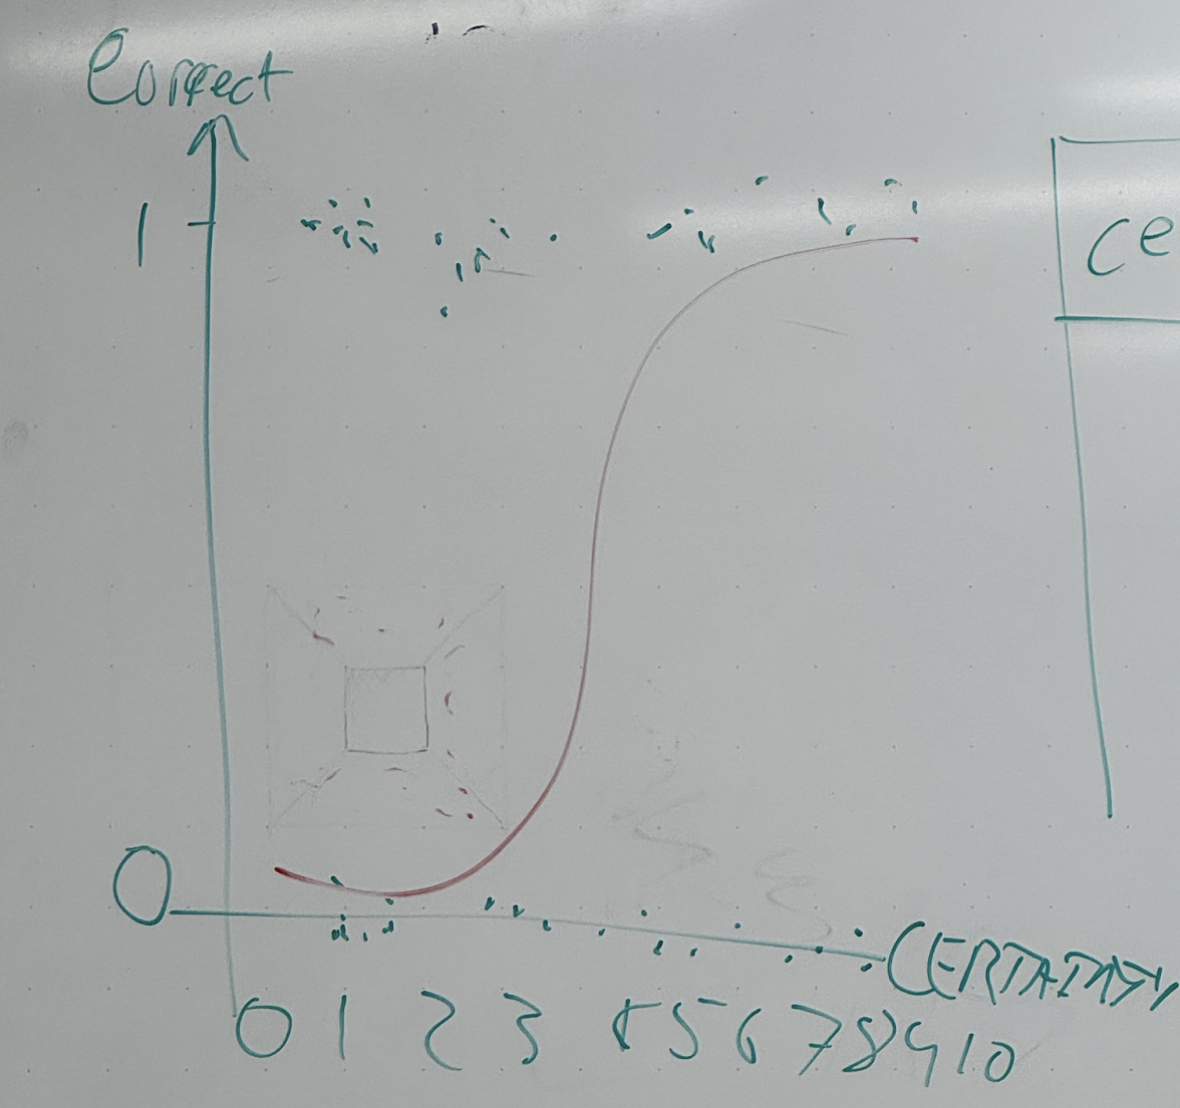 Correct
1
ce
0
CERTAINTY
0 1 2 3 4 5 6 7 8 9 10